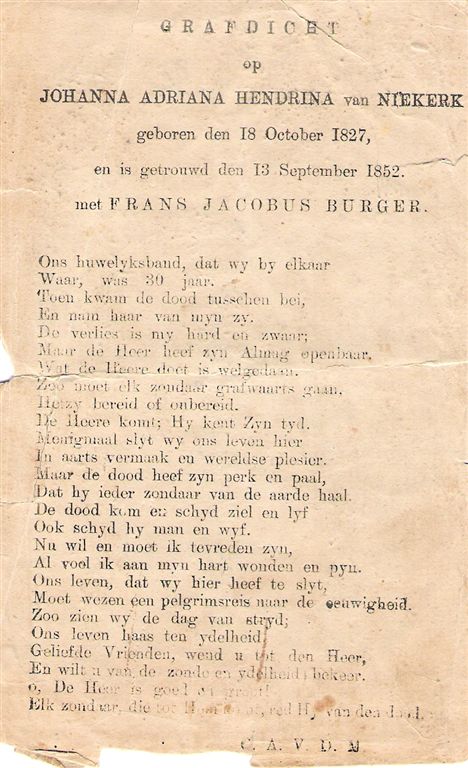 GRAFDICHT
op
JOHANNA ADRIANA HENDRINA van NIEKERK
geboren den 18 October 1827,
en is getrouwd den 13 September 1852.
met FRANS JACOBUS BURGER.
Ons huwelyksband, dat wy by elkaar
Waar, was 30 jaar.
Toen kwam de dood tusschen bei,
En nam haar van myn zy.
De verlies is my hard en zwaar;
Maar de Heer heef zyn Almag openbaar.
Wat de Heere doet is welgedaan.
Zoo moet elk zondaar grafwaarts gaan,
Hetzy bereid of onbereid.
De Heere komt; Hy kent Zyn tyd.
Menigmaal slyt wy ons leven hier
In aarts vermaak en wereldse plesier.
Maar de dood heef zyn perk en paal,
Dat hy ieder zondaar van de aarde haal.
De dood kom en schyd ziel en lyf
Ook schyd hy man en wyf.
Nu wil en moet ik tevreden zyn,
Al voel ik aan myn hart wonden en pyn.
Ons leven, dat wy hier heef te slyt,
Moet wezen een pelgrimsreis naar de eeuwigheid.
Zoo zien wy de dag van stryd;
Ons leven haas ten ydelheid,
Geliefde Vrienden, wend u tot den Heer,
En wilt u van de zonde en ydelheid bekeer.
o, De Heer is goed en groot!
Elk zondaar, die tot Hem, red Hy van den dood.
C. A. V. D. M